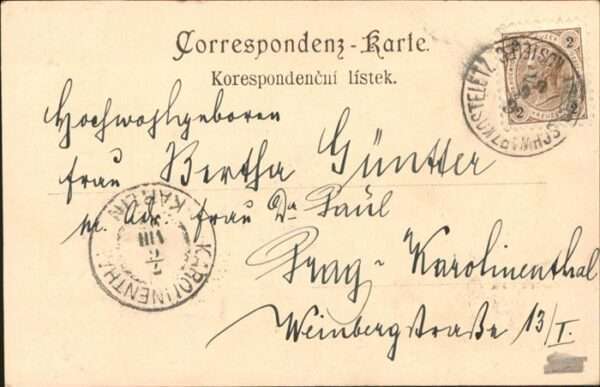 Correspondenz-Karte.
Korespondenční lístek.
2
2
Hochwohlgeboren
Frau Bertha Güntter
m. Adr. Frau Dr Paul
Prag-Karolinenthal
Weinbergstraße 13/I.
SCHWARZKOSTELETZ
KAROLINENTHAL
KARLÍN
VIII